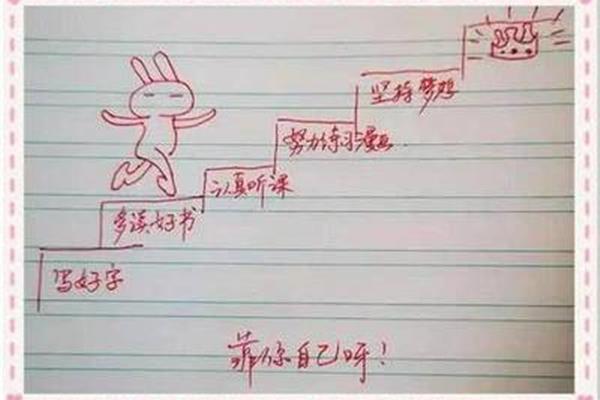 坚持梦想
努力练习漫画.
认真听课
多读好书
写好字
靠你自己呀!